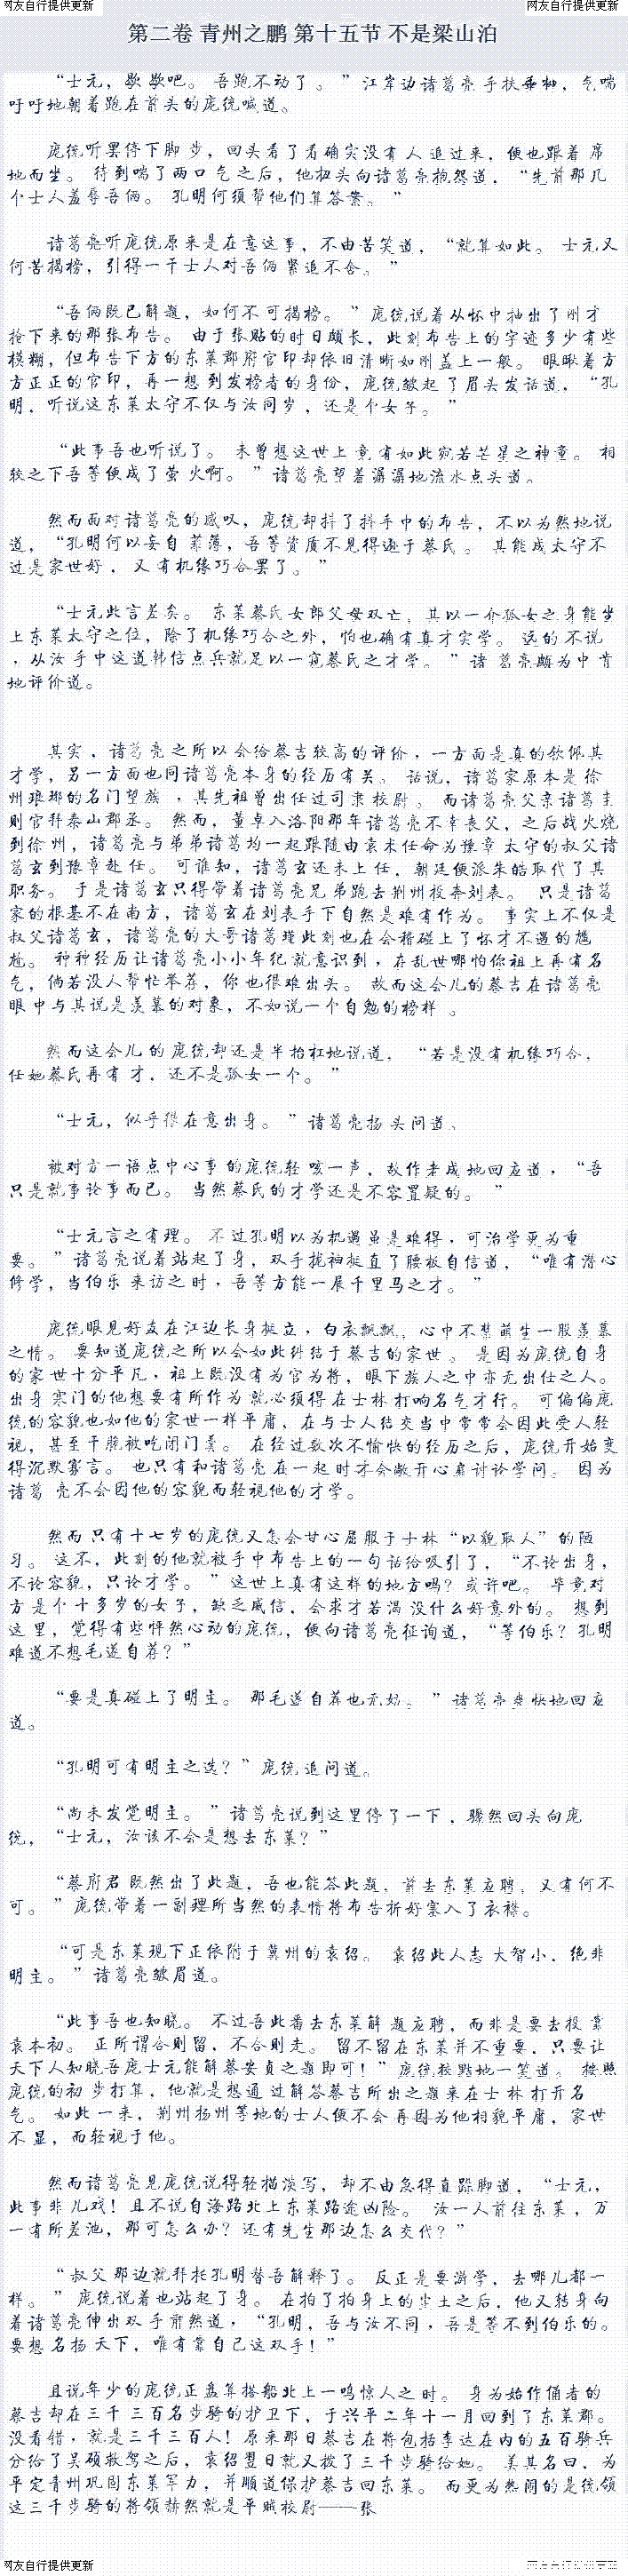 网友自行提供更新 网友自行提供更新
第二卷 青州之鹏 第十五节 不是梁山泊
“士元，歇歇吧。 吾跑不动了 。 ”江岸边诸葛亮手扶垂柳，气喘
吁吁地朝着跑在前头的庞统喊道。
庞统听罢停下脚步，回头看了看确实没有人追过来，便也跟着席
地而坐。 待到喘了两口气之后，他扭头向诸葛亮抱怨道，“先前那几
个士人羞辱吾俩。 孔明何须帮他们算答案。 ”
诸葛亮听庞统原来是在意这事，不由苦笑道，“就算如此。 士元又
何苦揭榜，引得一干士人对吾俩紧追不舍。 ”
“吾俩既已解题，如何不可揭榜。 ”庞统说着从怀中抽出了刚才
抢下来的那张布告。 由于张贴的时日颇长，此刻布告上的字迹多少有些
模糊，但布告下方的东莱郡府官印却依旧清晰如刚盖上一般。 眼瞅着方
方正正的官印，再一想到发榜者的身份，庞统皱起了眉头发话道，“孔
明，听说这东莱太守不仅与汝同岁，还是个女子。 ”
“此事吾也听说了。 未曾想这世上竟有如此宛若芒星之神童。 相
较之下吾等便成了萤火啊。 ”诸葛亮望着潺潺地流水点头道。
然而面对诸葛亮的感叹，庞统却抖了抖手中的布告，不以为然地说
道，“孔明何以妄自菲薄，吾等资质不见得逊于蔡氏。 其能成太守不
过是家世好，又有机缘巧合罢了。 ”
“士元此言差矣。 东莱蔡氏女郎父母双亡，其以一介孤女之身能坐
上东莱太守之位，除了机缘巧合之外，怕也确有真才实学。 远的不说
，从汝手中这道韩信点兵就足以一窥蔡氏之才学。 ”诸葛亮颇为中肯
地评价道。
其实，诸葛亮之所以会给蔡吉较高的评价，一方面是真的钦佩其
才学，另一方面也同诸葛亮本身的经历有关。 话说，诸葛家原本是徐
州琅琊的名门望族 ，其先祖曾出任过司隶校尉。 而诸葛亮父亲诸葛圭
则官拜泰山郡丞。 然而，董卓入洛阳那年诸葛亮不幸丧父，之后战火烧
到徐州，诸葛亮与弟弟诸葛均一起跟随由袁术任命为豫章太守的叔父诸
葛玄到豫章赴任。 可谁知，诸葛玄还未上任，朝廷便派朱皓取代了其
职务。 于是诸葛玄只得带着诸葛亮兄弟跑去荆州投奔刘表。 只是诸葛
家的根基不在南方，诸葛玄在刘表手下自然是难有作为。 事实上不仅是
叔父诸葛玄，诸葛亮的大哥诸葛瑾此刻也在会稽碰上了怀才不遇的尴
尬。 种种经历让诸葛亮小小年纪就意识到，在乱世哪怕你祖上再有名
气，倘若没人帮忙举荐，你也很难出头。 故而这会儿的蔡吉在诸葛亮
眼中与其说是羡慕的对象，不如说一个自勉的榜样 。
然而这会儿的庞统却还是半抬杠地说道， “若是没有机缘巧合，
任她蔡氏再有才，还不是孤女一个。 ”
“士元，似乎很在意出身。 ”诸葛亮扬头问道、
被对方一语点中心事的庞统轻咳一声，故作老成地回应道，“吾
只是就事论事而已。 当然蔡氏的才学还是不容置疑的。 ”
“士元言之有理。 不过孔明以为机遇虽是难得，可治学更为重
要。 ”诸葛亮说着站起了身，双手拢袖挺直了腰板自信道，“唯有潜心
修学，当伯乐来访之时，吾等方能一展千里马之才。 ”
庞统眼见好友在江边长身挺立，白衣飘飘，心中不禁萌生一股羡慕
之情。 要知道庞统之所以会如此纠结于蔡吉的家世 。 是因为庞统自身
的家世十分平凡，祖上既没有为官为将，眼下族人之中亦无出仕之人。
出身寒门的他想要有所作为就必须得在士林打响名气才行。 可偏偏庞
统的容貌也如他的家世一样平庸，在与士人结交当中常常会因此受人轻
视，甚至干脆被吃闭门羹。 在经过数次不愉快的经历之后，庞统开始变
得沉默寡言。 也只有和诸葛亮在一起时才会敞开心扉讨论学问。 因为
诸葛亮不会因他的容貌而轻视他的才学。
然而只有十七岁的庞统又怎会甘心屈服于士林“以貌取人”的陋
习。 这不，此刻的他就被手中布告上的一句话给吸引了，“不论出身，
不论容貌，只论才学。 ”这世上真有这样的地方吗？或许吧。 毕竟对
方是个十多岁的女子，缺乏威信，会求才若渴没什么好意外的。 想到
这里，觉得有些怦然心动的庞统，便向诸葛亮征询道，“等伯乐？孔明
难道不想毛遂自荐？”
“要是真碰上了明主。 那毛遂自荐也无妨。 ”诸葛亮爽快地回应
道。
“孔明可有明主之选？”庞统追问道。
“尚未发觉明主。 ”诸葛亮说到这里停了一下，骤然回头向庞
统，“士元，汝该不会是想去东莱？”
“蔡府君既然出了此题，吾也能答此题，前去东莱应聘，又有何不
可。 ”庞统带着一副理所当然的表情将布告折好塞入了衣襟。
“可是东莱现下正依附于冀州的袁绍。 袁绍此人志大智小，绝非
明主。 ”诸葛亮皱眉道。
“此事吾也知晓。 不过吾此番去东莱解题应聘，而非是要去投靠
袁本初。 正所谓合则留，不合则走。 留不留在东莱并不重要，只要让
天下人知晓吾庞士元能解蔡安贞之题即可！”庞统狡黠地一笑道。 按照
庞统的初步打算，他就是想通过解答蔡吉所出之题来在士林打开名
气。 如此一来，荆州扬州等地的士人便不会再因为他相貌平庸，家世
不显，而轻视于他。
然而诸葛亮见庞统说得轻描淡写，却不由急得直跺脚道，“士元，
此事非儿戏！且不说自海路北上东莱路途凶险。 汝一人前往东莱，万
一有所差池，那可怎么办？还有先生那边怎么交代？”
“叔父那边就拜托孔明替吾解释了。 反正是要游学，去哪儿都一
样。 ”庞统说着也站起了身。 在拍了拍身上的尘土之后，他又转身向
着诸葛亮伸出双手肃然道，“孔明，吾与汝不同，吾是等不到伯乐的。
要想名扬天下，唯有靠自己这双手！”
且说年少的庞统正盘算搭船北上一鸣惊人之时。 身为始作俑者的
蔡吉却在三千三百名步骑的护卫下，于兴平二年十一月回到了东莱郡。
没看错，就是三千三百人！原来那日蔡吉在将包括李达在内的五百骑兵
分给了吴硕救驾之后，袁绍翌日就又拨了三千步骑给她。 美其名曰，为
平定青州巩固东莱军力，并顺道保护蔡吉回东莱。 而更为热闹的是统领
这三千步骑的将领赫然就是平贼校尉——张
网友自行提供更新 网友自行提供更新